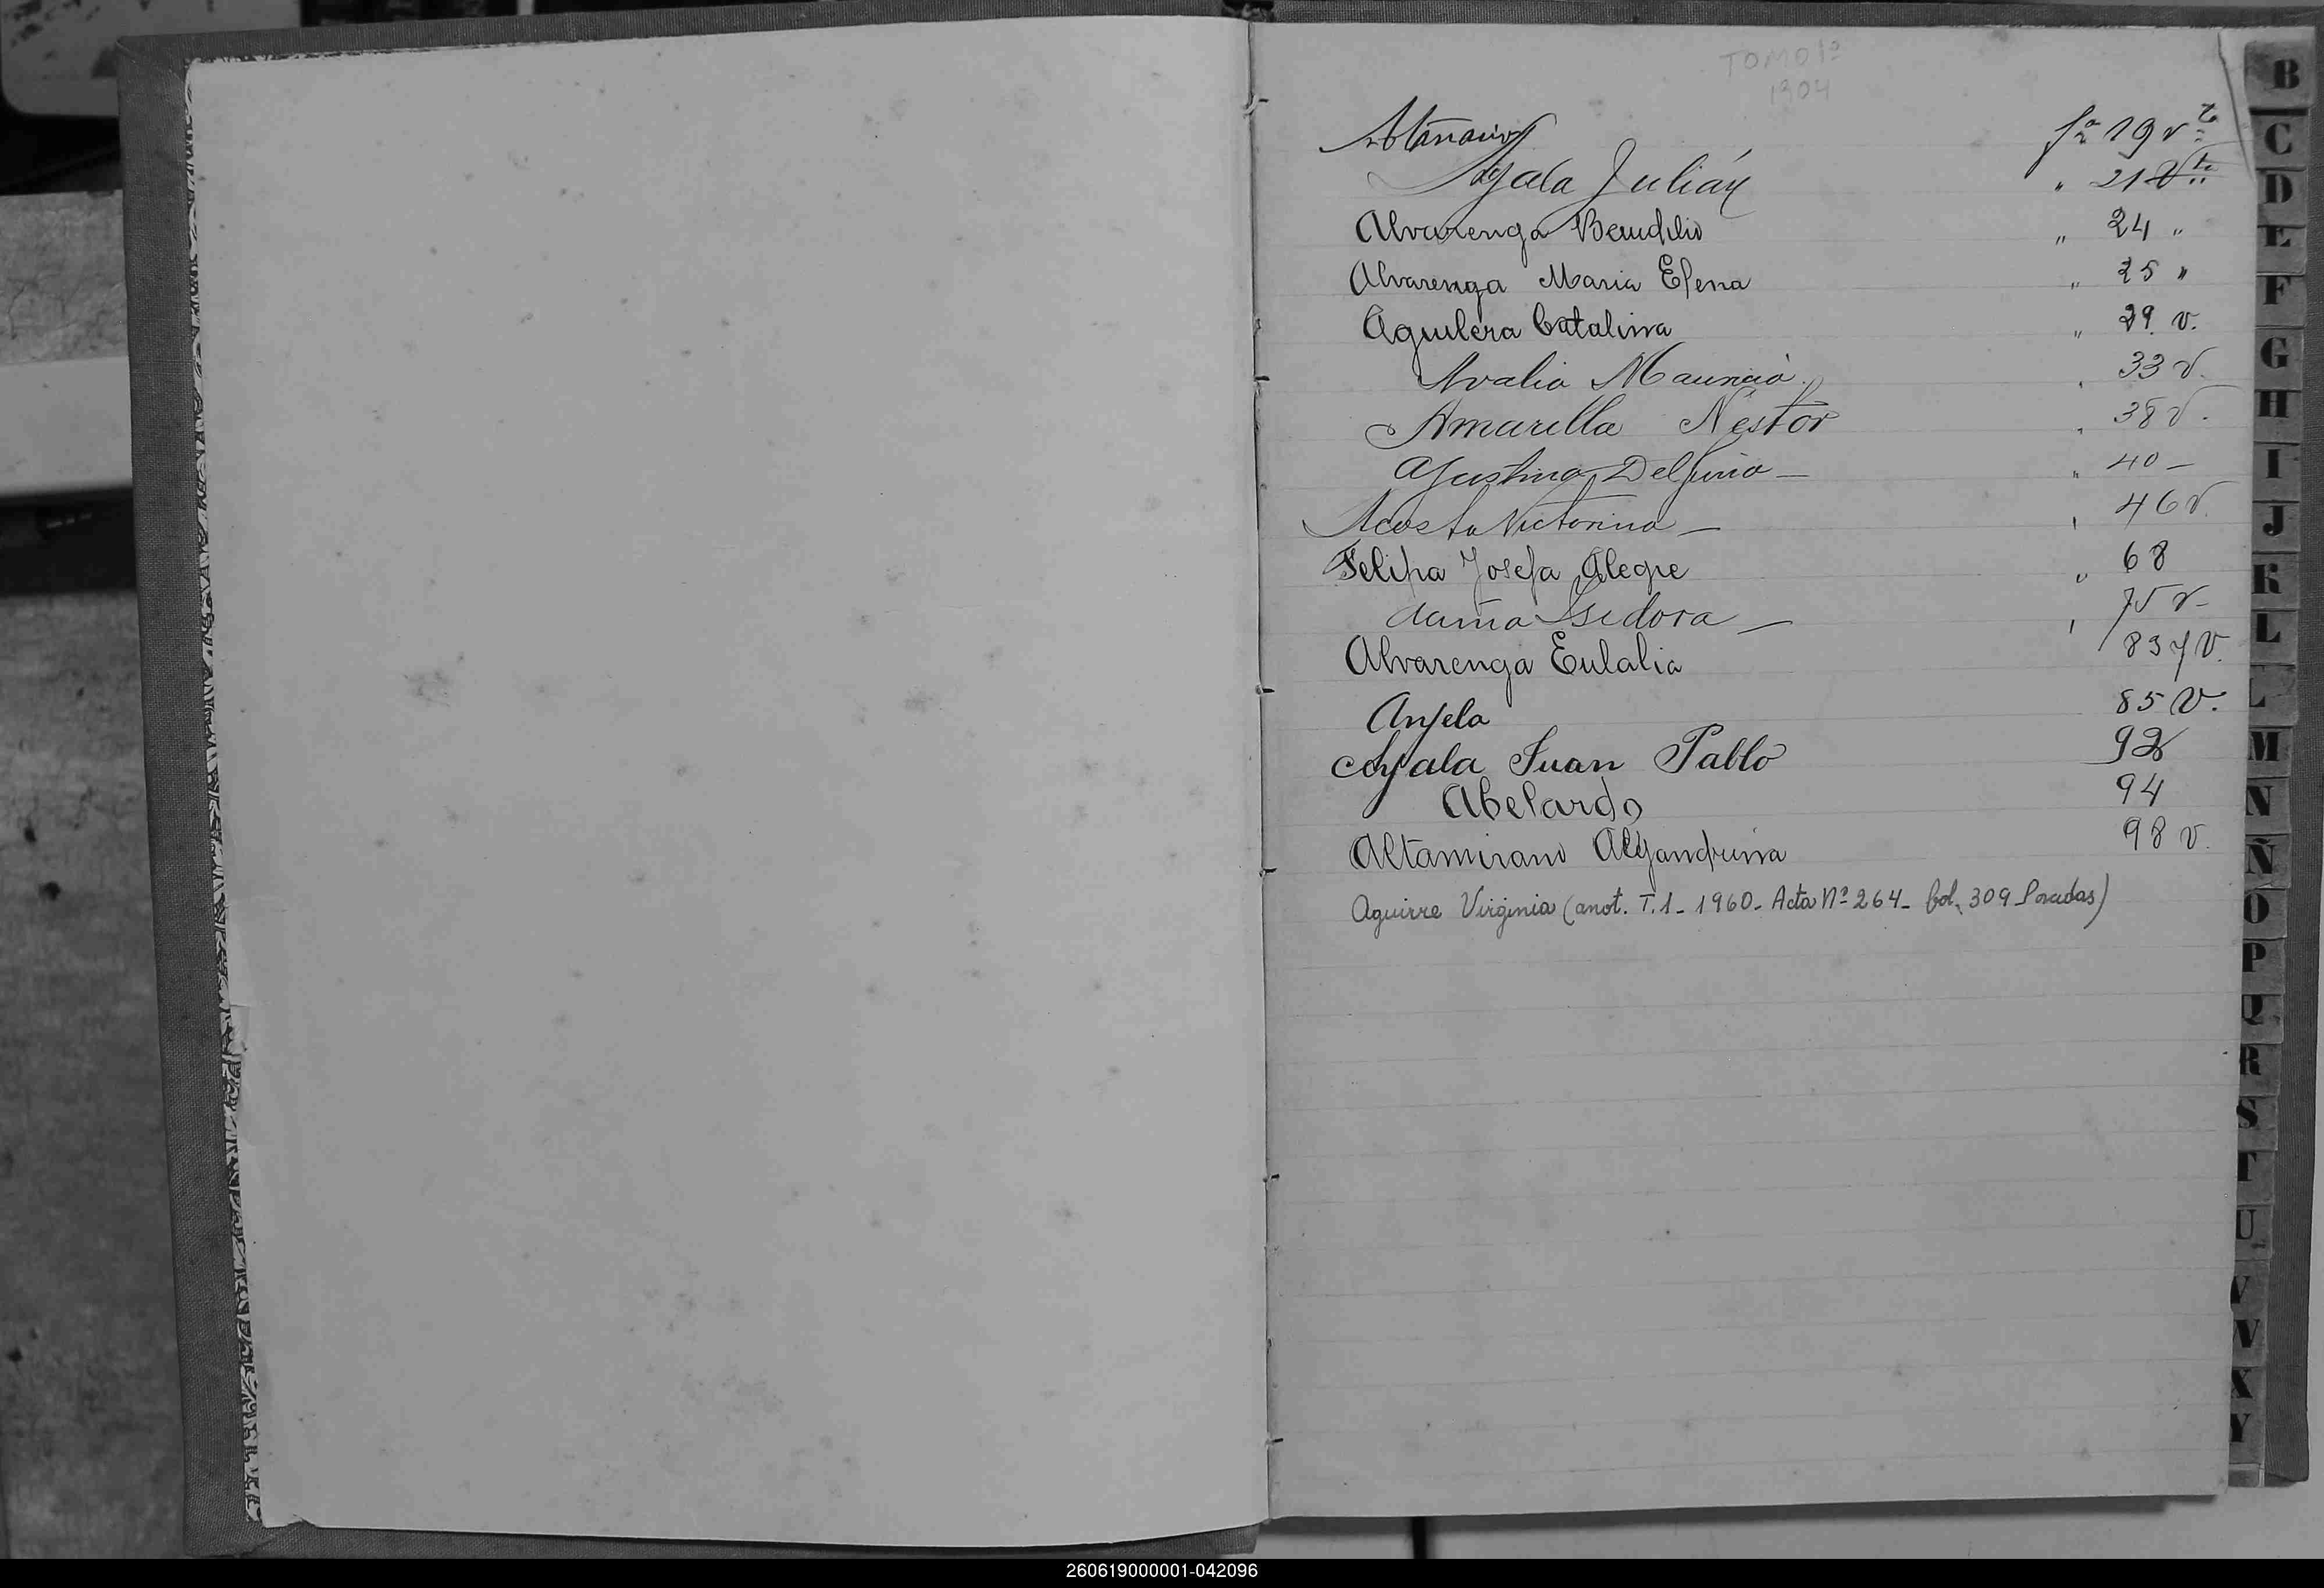 TOMO 1º
1904
Atanacio fº 19 vta
Ayala Julián " 21 Vta
Alvarenga Baudilio " 24 "
Alvarenga Maria Elena " 25 "
Aguilera Catalina " 29. v.
Avalio Mauricio 33 v.
Amarilla Nestor 38 v.
Agustina Delfina — " 40 —
Acosta Victorina — 46 v.
Felipa Josefa Alegre " 68
Isidora — 75 v—
Alvarenga Eulalia 83 v.
Anjela 85 v.
Ayala Juan Pablo 92
Abelardo 94
Altamirano Alejandrina 98 v.
Aguirre Virginia (anot. T.1 - 1960 - Acta Nº 264 - fol. 309 Posadas)
B
C
D
E
F
G
H
I
J
K
L
L
M
N
Ñ
O
P
Q
R
S
T
U
V
X
Y
260619000001-042096